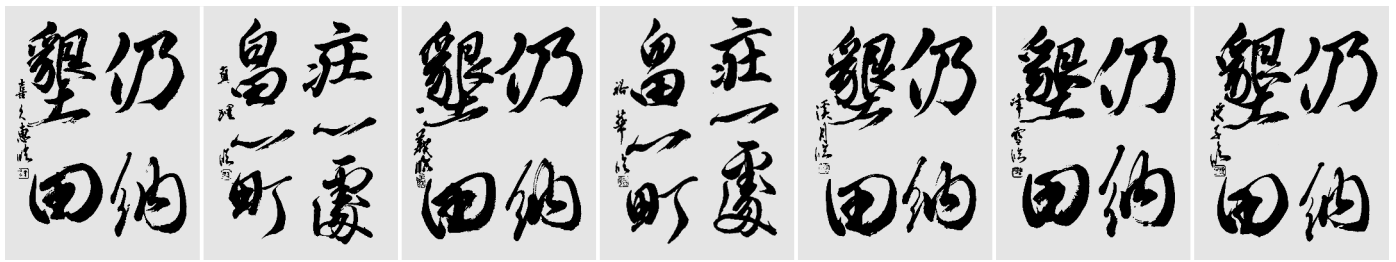 仍納
墾田
喜久惠臨
庄一處
畠一町
臨
仍納
墾田
庄一處
畠一町
裕華臨
仍納
墾田
溪月臨
仍納
墾田
仍納
墾田